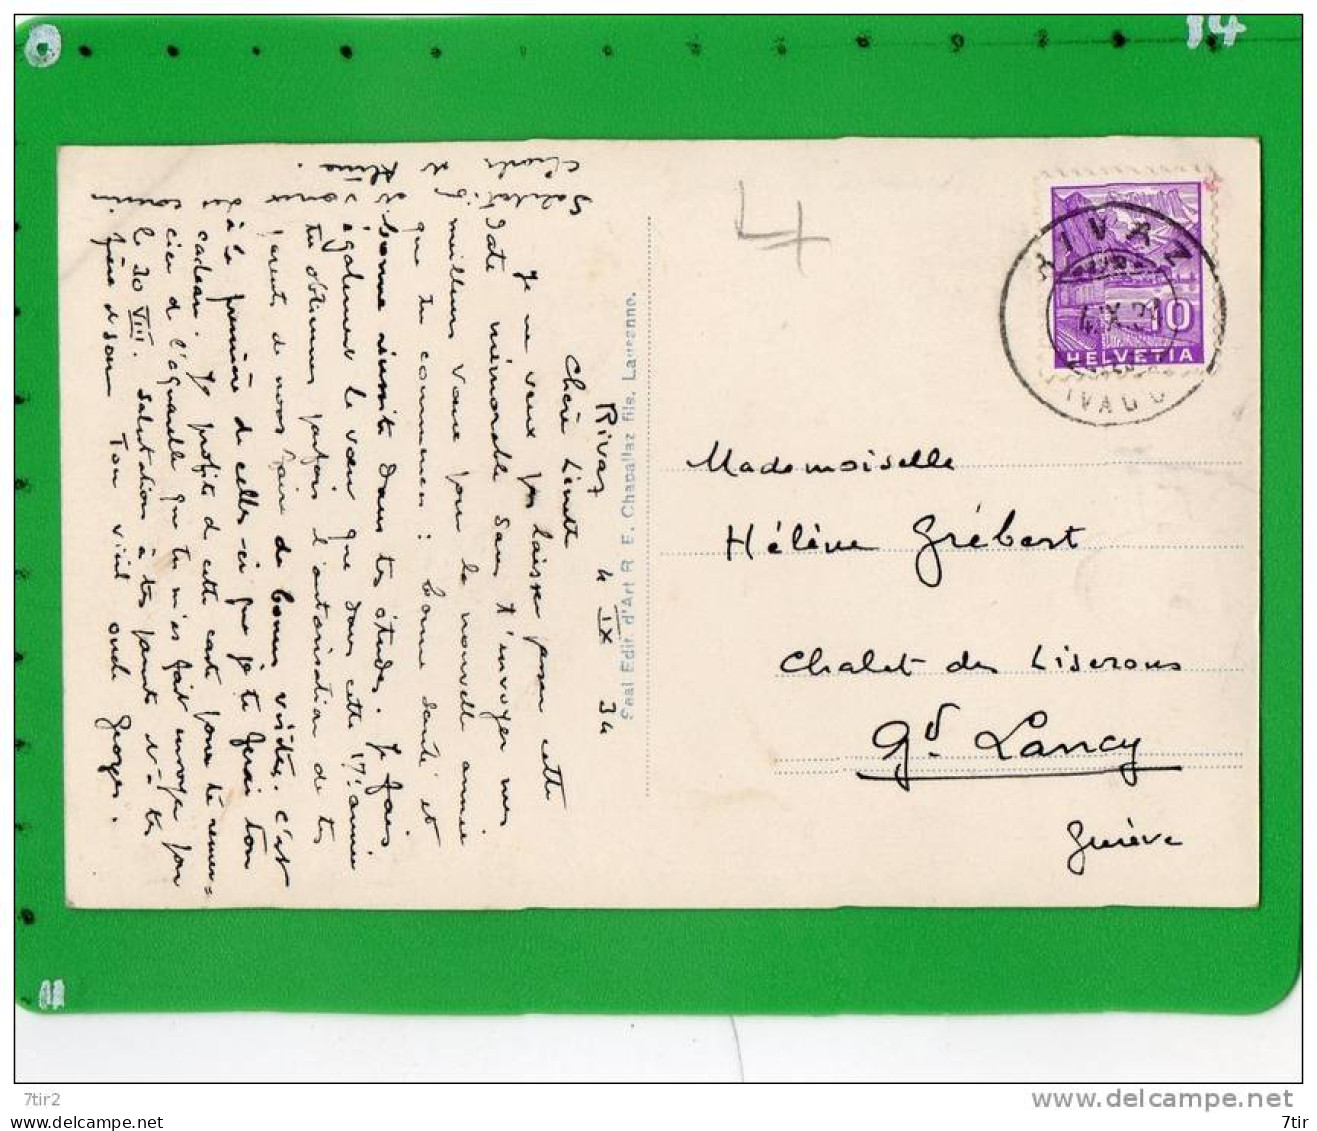 14
Rivaz 4 IX 34
Chère Linette
Je ne veux pas laisser passer cette
date mémorable sans t'envoyer mes
meilleurs vœux pour la nouvelle année
que tu commences : bonne santé et
bonne réussite dans tes études. Je fais
également le vœu que dans cette 17e année
tu obtiennes parfois l'autorisation de tes
parents de nous faire de bonnes visites. C'est
à la première de celles-ci que je te ferai ton
cadeau. Je profite de cette carte pour te remer-
cier de l'aquarelle que tu m'as fait envoyer pour
le 30 VIII. Salutations à tes parents et à tes
frère et sœur Ton vieil oncle Georges.
Seal Edit. d'Art R. E. Chapallaz fils, Lausanne.
4
RIVAZ
4.IX.34
10
HELVETIA
Mademoiselle
Hélène Grébert
Chalet des Liserons
Gd. Lancy
Genève
11
7tir2
delcampe.net
https://my.delcampe.net
7tir